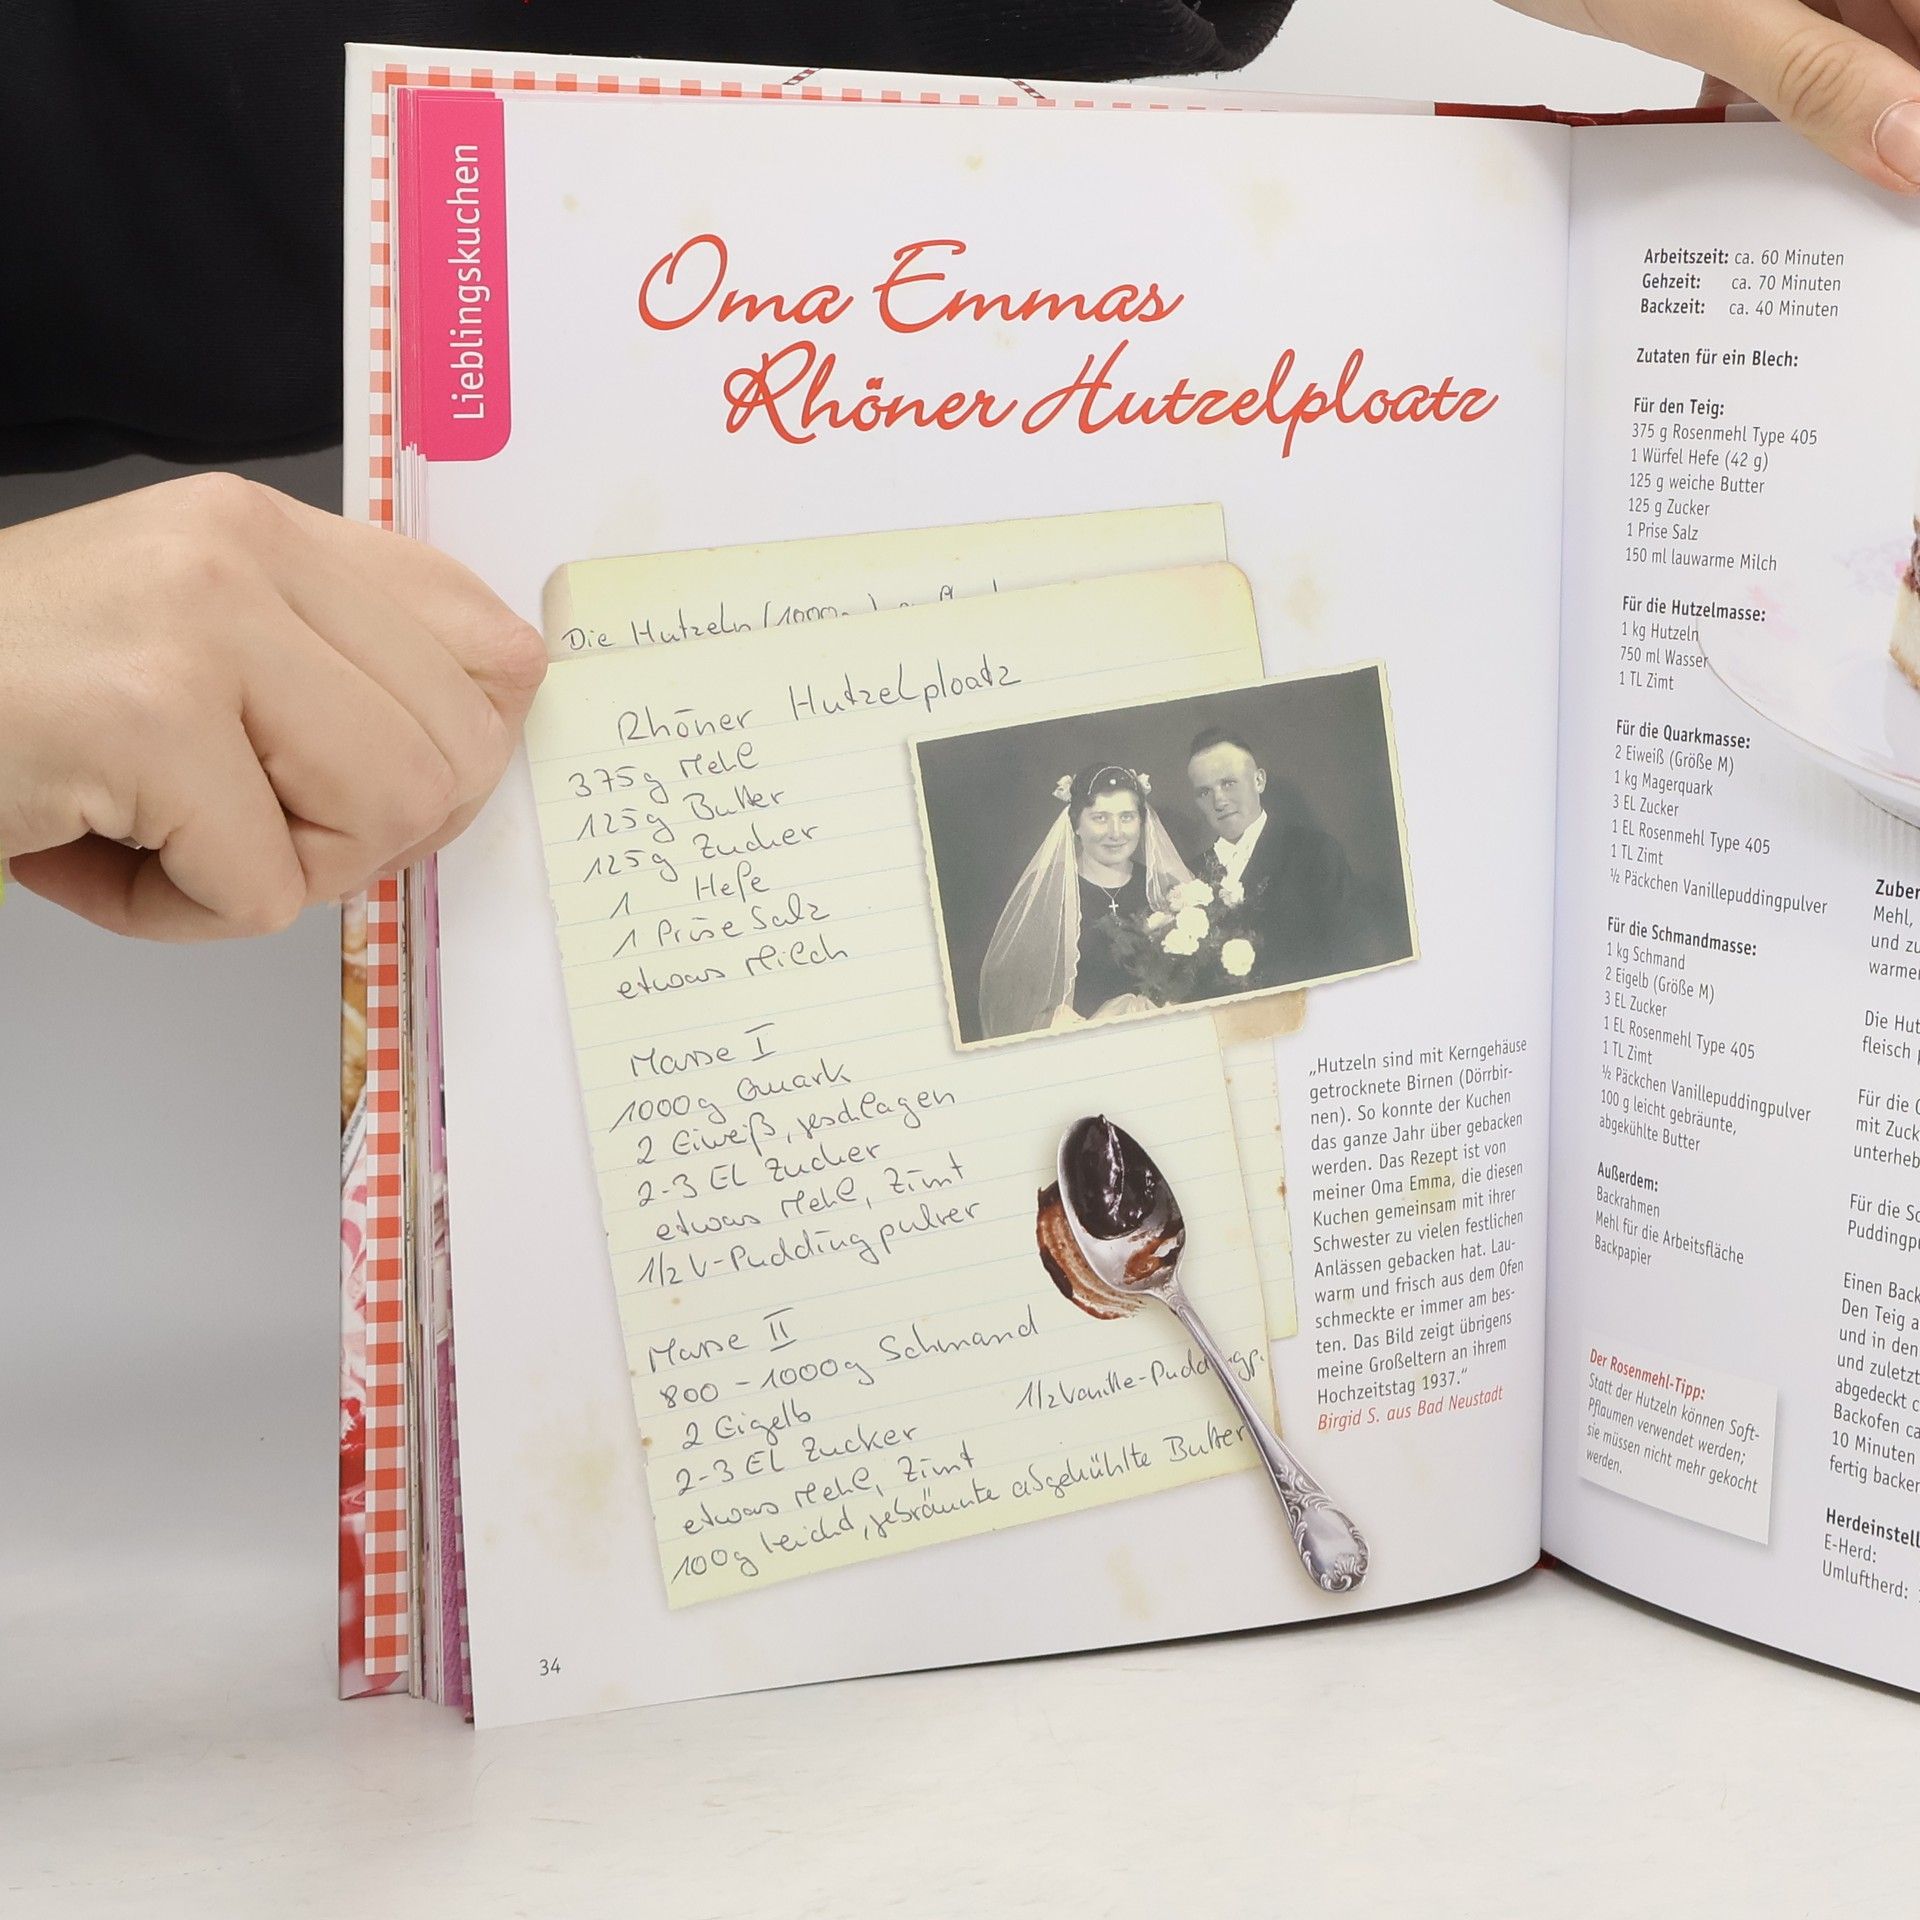 Lieblingskuchen
Oma Emmas
Rhöner Hutzelploatz
Die Hutzeln (1000
Rhöner Hutzelploatz
375g Mehl
125g Butter
125g Zucker
1 Hefe
1 Prise Salz
etwas Milch
Masse I
1000g Quark
2 Eiweiß, geschlagen
2-3 EL Zucker
etwas Mehl, Zimt
1/2 V-Puddingpulver
Masse II
800 - 1000g Schmand
2 Eigelb
1/2 Vanille-Puddingp.
2-3 EL Zucker
etwas Mehl, Zimt
100g leicht, gebräunte abgekühlte Butter
„Hutzeln sind mit Kerngehäuse
getrocknete Birnen (Dörrbir-
nen). So konnte der Kuchen
das ganze Jahr über gebacken
werden. Das Rezept ist von
meiner Oma Emma, die diesen
Kuchen gemeinsam mit ihrer
Schwester zu vielen festlichen
Anlässen gebacken hat. Lau-
warm und frisch aus dem Ofen
schmeckte er immer am bes-
ten. Das Bild zeigt übrigens
meine Großeltern an ihrem
Hochzeitstag 1937.“
Birgid S. aus Bad Neustadt
34
Arbeitszeit: ca. 60 Minuten
Gehzeit: ca. 70 Minuten
Backzeit: ca. 40 Minuten
Zutaten für ein Blech:
Für den Teig:
375 g Rosenmehl Type 405
1 Würfel Hefe (42 g)
125 g weiche Butter
125 g Zucker
1 Prise Salz
150 ml lauwarme Milch
Für die Hutzelmasse:
1 kg Hutzeln
750 ml Wasser
1 TL Zimt
Für die Quarkmasse:
2 Eiweiß (Größe M)
1 kg Magerquark
3 EL Zucker
1 EL Rosenmehl Type 405
1 TL Zimt
½ Päckchen Vanillepuddingpulver
Für die Schmandmasse:
1 kg Schmand
2 Eigelb (Größe M)
3 EL Zucker
1 EL Rosenmehl Type 405
1 TL Zimt
½ Päckchen Vanillepuddingpulver
100 g leicht gebräunte,
abgekühlte Butter
Außerdem:
Backrahmen
Mehl für die Arbeitsfläche
Backpapier
Der Rosenmehl-Tipp:
Statt der Hutzeln können Soft-
Pflaumen verwendet werden;
sie müssen nicht mehr gekocht
werden.
Zuber
Mehl,
und zu
warme
Die Hut
fleisch
Für die
mit Zuck
unterheb
Für die Sc
Puddingp
Einen Back
Den Teig a
und in den
und zuletzt
abgedeckt
Backofen ca
10 Minuten
fertig backen
Herdeinstell
E-Herd:
Umluftherd: